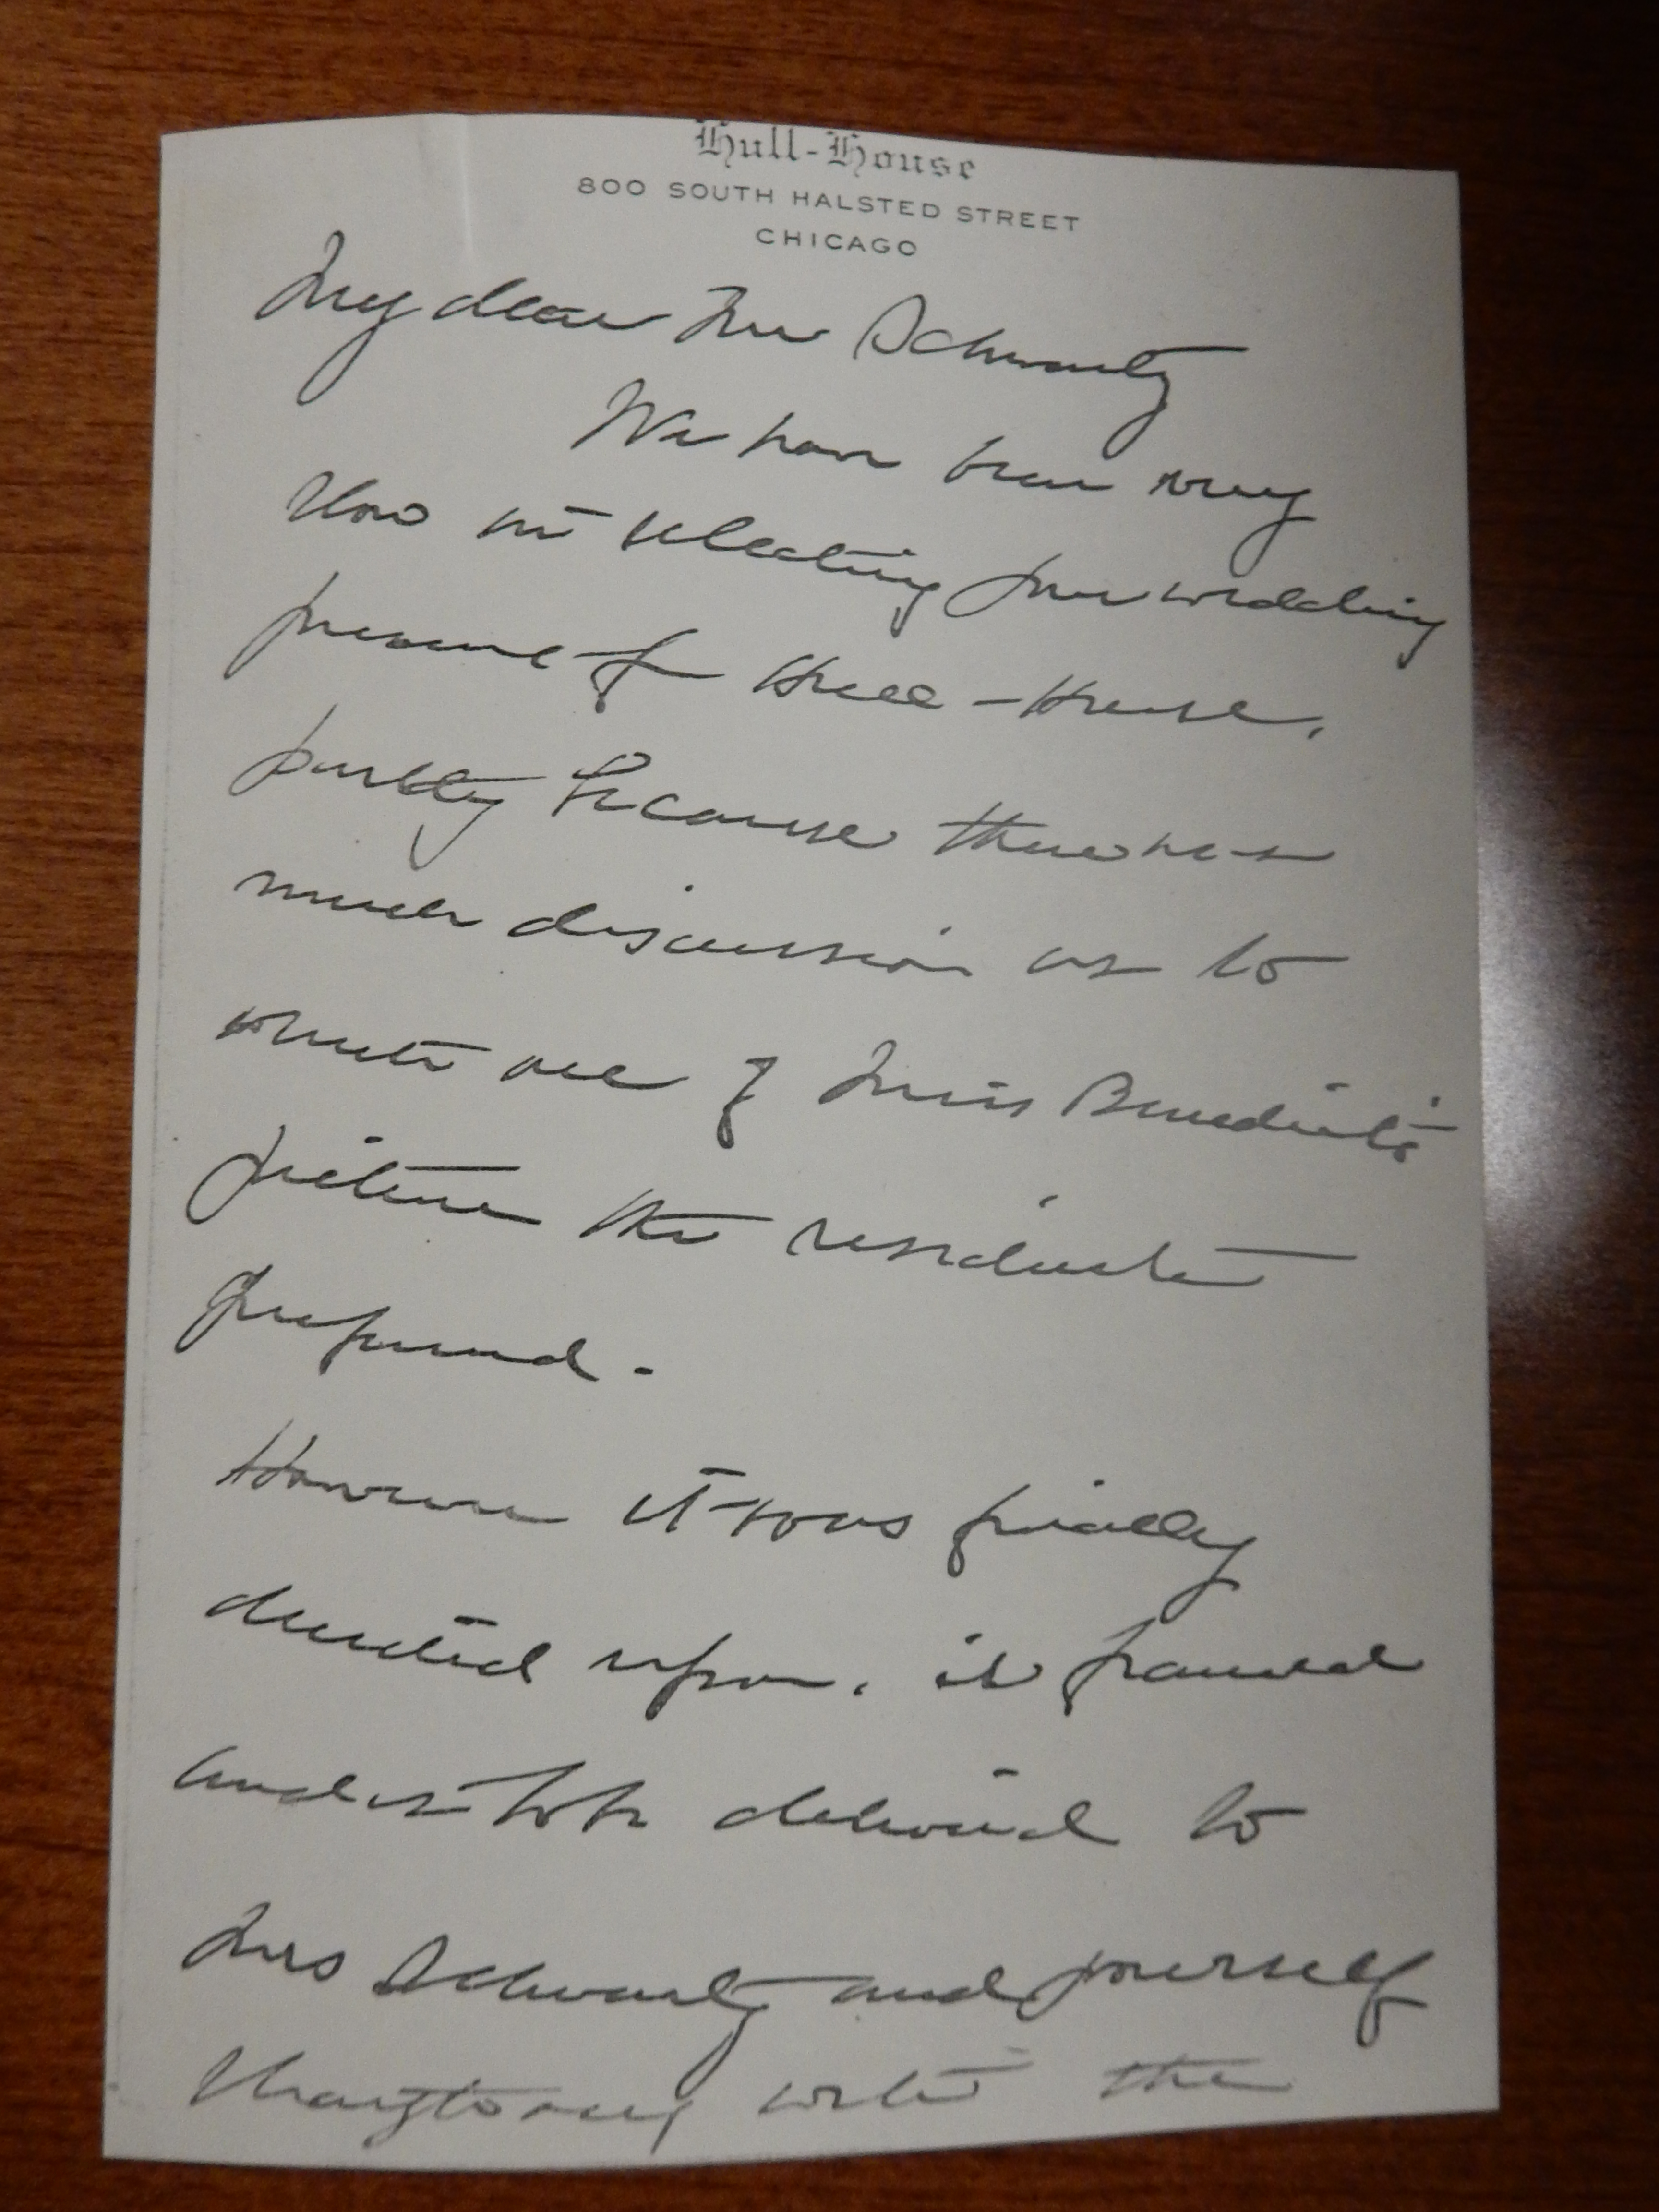 Hull-House
800 SOUTH HALSTED STREET
CHICAGO
My dear Mr Schwartz
We have been very
slow in selecting your wedding
present from Hull-House,
partly because there was
much discussion as to
which one of Miss Benedict's
picture the residents
preferred.
However it was finally
decided upon, is framed
and is to be delivered to
Mrs Schwartz and yourself
with the